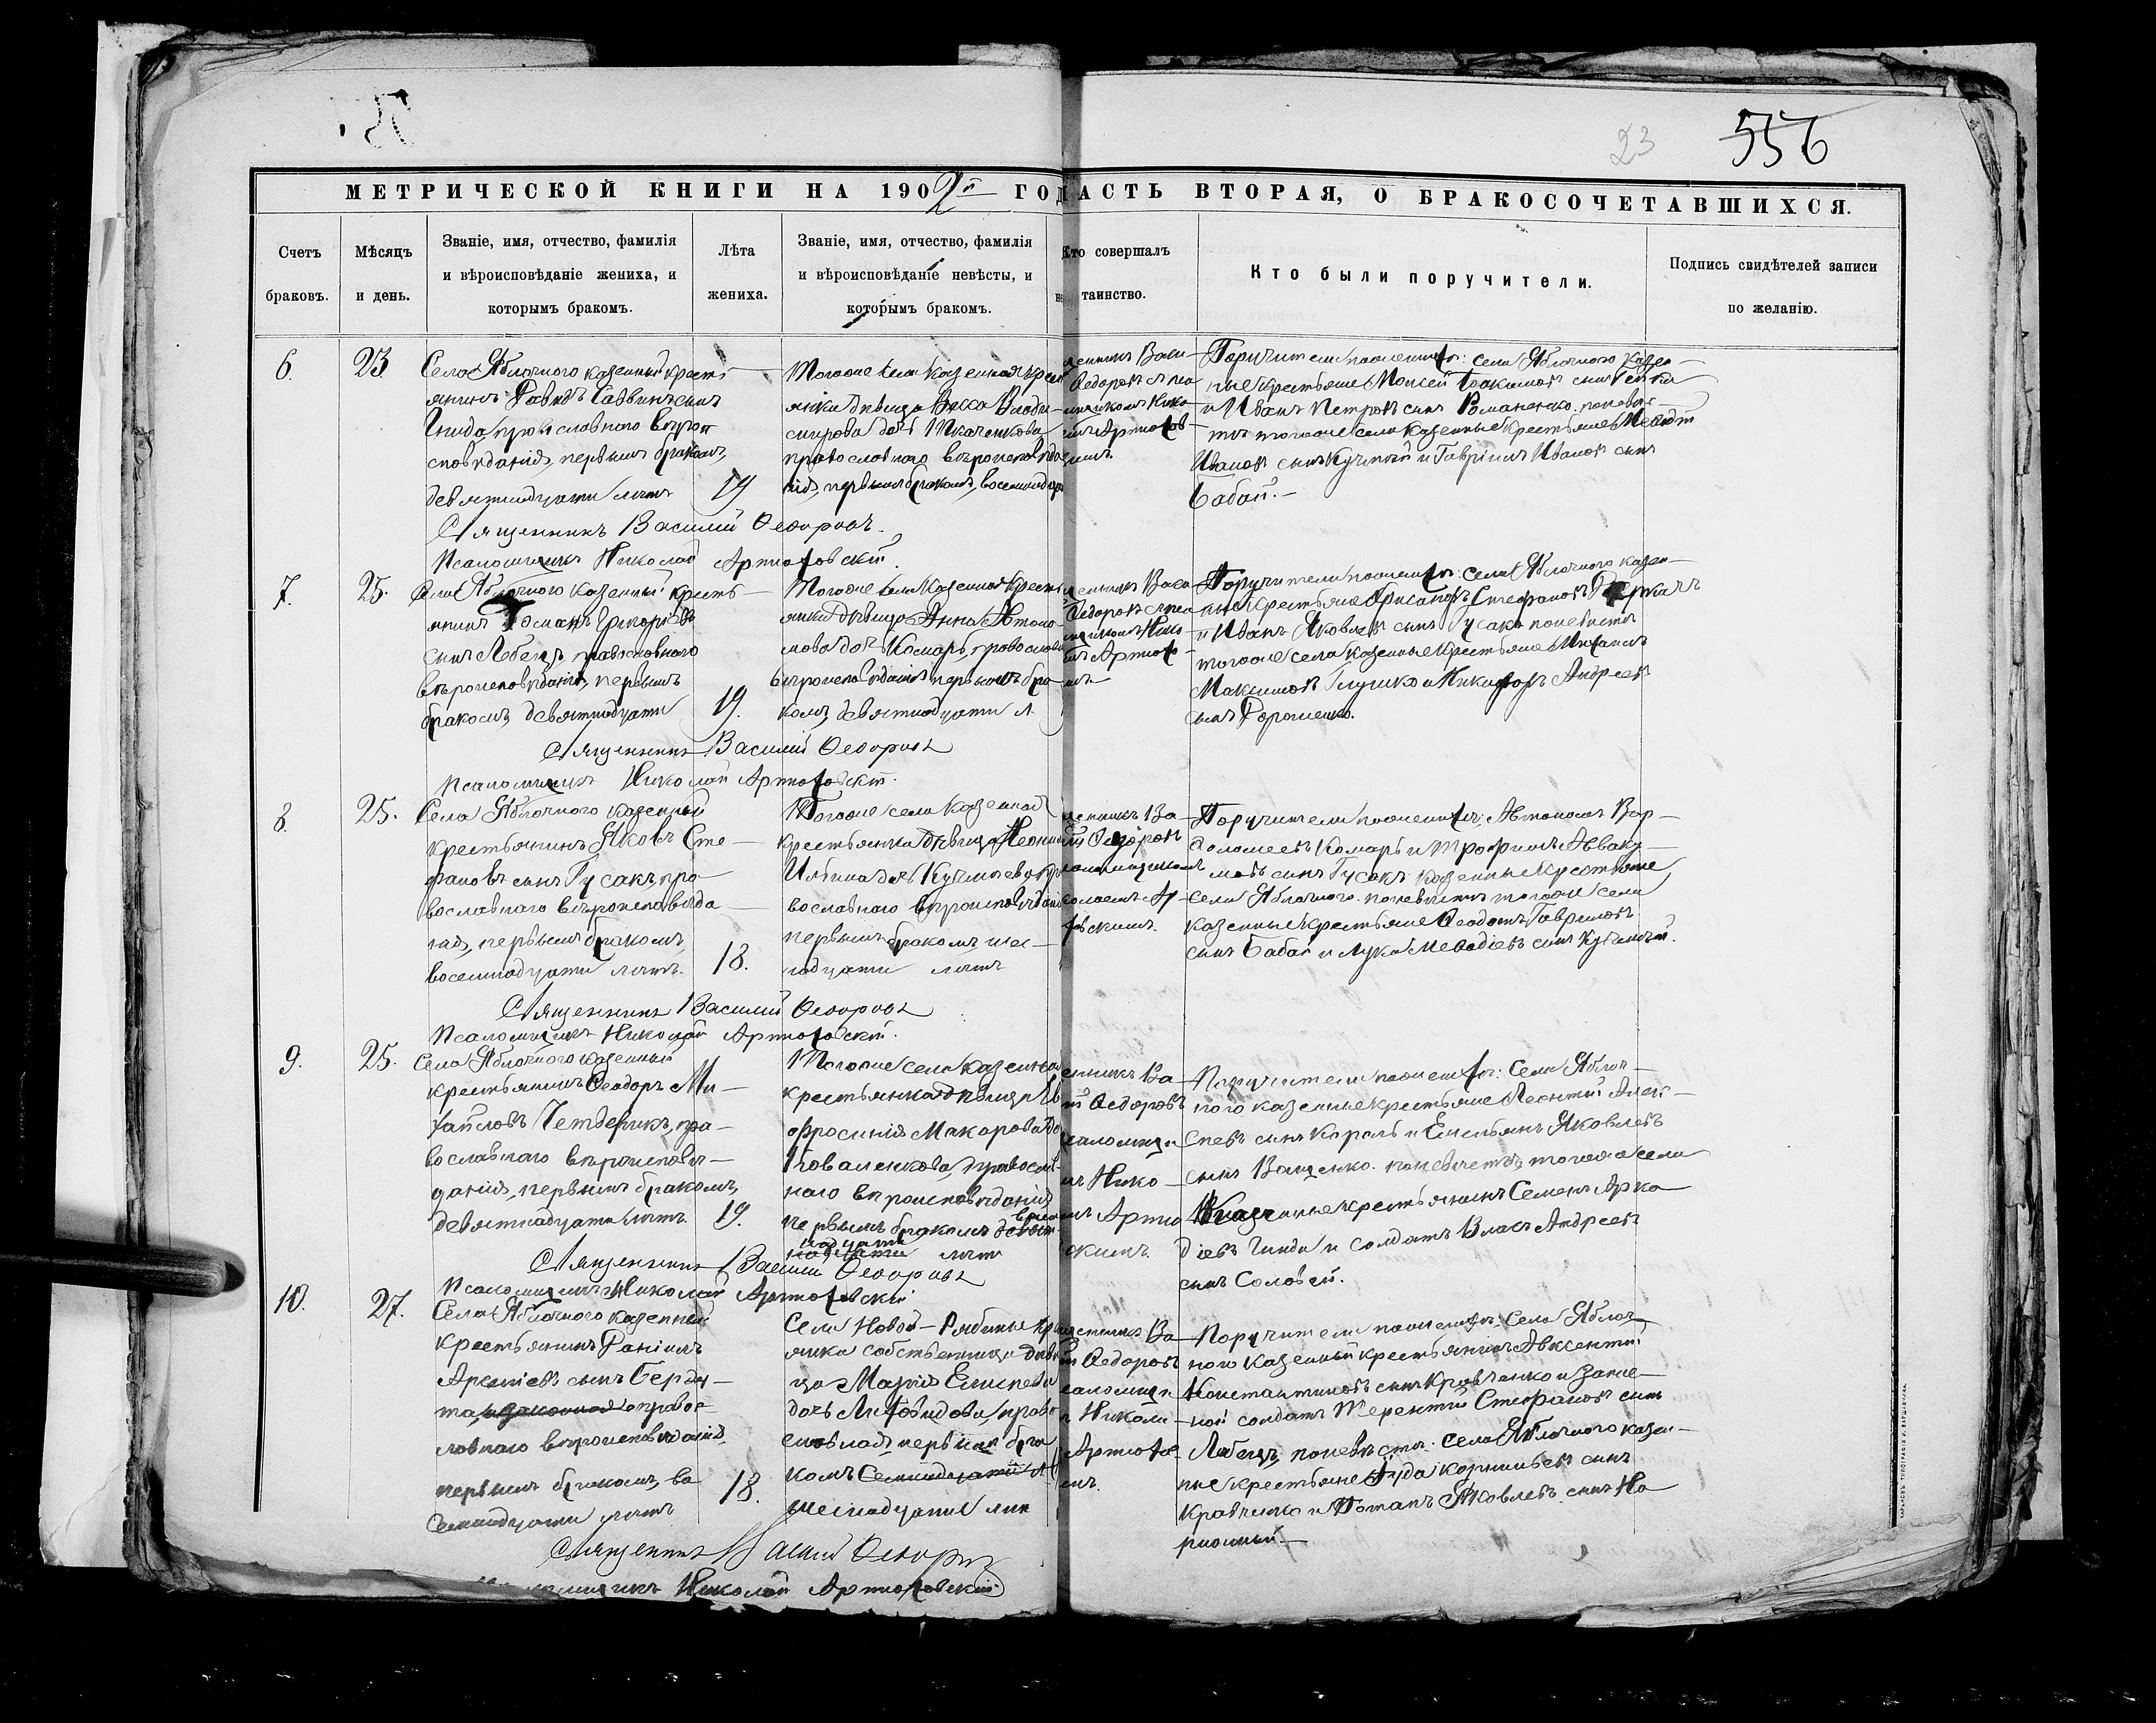 23 556
МЕТРИЧЕСКОЙ КНИГИ НА 1902й ГОД
АСТЬ ВТОРАЯ, О БРАКОСОЧЕТАВШИХСЯ.
Счетъ браковъ.
Мѣсяцъ и день.
Званіе, имя, отчество, фамилія
и вѣроисповѣданіе жениха, и
которымъ бракомъ.
Лѣта
жениха.
Званіе, имя, отчество, фамилія
и вѣроисповѣданіе невѣсты, и
которымъ бракомъ.
Кто совершалъ
таинство.
Кто были поручители.
Подпись свидѣтелей записи
по желанію.
6. 23
Села Яблочнаго казенный кресть
янинъ Давидъ Саввинъ сынъ
Гнида, православнаго вѣрои
сповѣданія, первымъ бракомъ,
девятнадцати лѣтъ
19
Тогоже села казенная крест
янка дѣвица Васса Влади-
мирова дочь Ткаченкова
православнаго вѣроисповѣда
нія, первымъ бракомъ, восемнадца
щенникъ Васи
Ѳедоровъ с пса
мщикомъ Нико
емъ Артюхов
Поручители по женихѣ: села Яблочнаго казен-
ные крестьяне Моисей сынъ
и Иванъ Петровъ сынъ Романенко. по невѣс-
тѣ тогоже села казенные крестьяне Меѳодій
Ивановъ сынъ Кучмій и Гавріилъ Ивановъ сынъ
Бабай.-
Священникъ Василій Ѳеодоровъ
Псаломщикъ Николай Артюховскій.
7. 25.
Села Яблочнаго казенный кресть-
янинъ Романъ Григоріевъ
сынъ Лебедь, православнаго
вѣроисповѣданія, первымъ
бракомъ, девятнадцати
19.
Тогоже села казенная кресть
янка дѣвица Анна Автоно-
мова дочь Комарь, православн
вѣроисповѣданія первымъ бра
комъ, девятнадцати л.
щенникъ Васи
Ѳедоровъ с пса
мщикомъ Нико
емъ Артюхо
Поручители по женихѣ: села Яблочнаго казен-
ные крестьяне Стефановъ Деркачъ
и Иванъ Яковлевъ сынъ Гусакъ по невѣстѣ
тогоже села казенные крестьяне Михаилъ
Максимовъ Глушко и Никифоръ Андреевъ
сынъ Дорошенко.
Священникъ Василій Ѳеодоровъ
Псаломщикъ Николай Артюховскій.
8. 25.
Села Яблочнаго казенный
крестьянинъ Яковъ Сте-
фановъ сынъ Гусакъ, пра
вославнаго вѣроисповѣда
нія, первымъ бракомъ,
восемнадцати лѣтъ.
18.
Тогоже села казенная
крестьянка дѣвица Леони
Ильина дочь Кучміева пр
вославнаго вѣроисповѣдані
первымъ бракомъ, шес-
надцати лѣтъ
щенникъ Ва
ій Ѳедоровъ
саломщикомъ
колаемъ Ар-
ховскимъ.
Поручители по женихѣ: Автономъ Вар-
ѳоломеевъ Комарь и Трофимъ Авваку-
мовъ сынъ Гусакъ казенные крестьяне
села Яблочнаго. по невѣстѣ тогоже села
казенные крестьяне Ѳеодотъ Гавриловъ
сынъ Бабай и Лука Меѳодіевъ сынъ Кучмій.
Священникъ Василій Ѳеодоровъ
Псаломщикъ Николай Артюховскій.
9. 25.
Села Яблочнаго казенный
крестьянинъ Ѳеодоръ Ми-
хайловъ Четверикъ, пра-
вославнаго вѣроисповѣ-
данія, первымъ бракомъ,
девятнадцати лѣтъ.
19.
Тогоже села казенная
крестьянка дѣвица Ев
фросинія Макарова до
Коваленкова, православ-
наго вѣроисповѣданія
первымъ бракомъ восем
надцати лѣтъ
щенникъ Ва
ій Ѳедоровъ
саломщи
мъ Нико-
емъ Артю
скимъ.
Поручители по женихѣ: Села Яблоч-
наго казенные крестьяне Леонтій Алек-
сѣевъ сынъ Король и Емельянъ Яковлевъ
сынъ Ващенко. по невѣстѣ тогоже села
казенные крестьянинъ Семенъ Арка
діевъ Гнида и солдатъ Власъ Андреевъ
сынъ Соловей.
Священникъ Василій Ѳеодоровъ
Псаломщикъ Николай Артюховскій
10. 27.
Села Яблочнаго казенный
крестьянинъ Даніилъ
Арсеніевъ сынъ Берду-
та, правос-
лавнаго вѣроисповѣданія,
первымъ бракомъ, во
семнадцати лѣтъ
18.
Села Новой-Рябины кр
янка собственница дѣви
ца Марія Елисеева
дочь Литовидова, право
славнаго, первымъ бра
комъ семнадцати л
шеснадцати лѣт
щенникъ Ва
ій Ѳедоровъ
саломщи
ъ Никола-
Артюхов
мъ.
Поручители по женихѣ: Села Яблоч-
наго казенный крестьянинъ Авксентій
Константиновъ сынъ Кравченко и запас-
ной солдатъ Терентій Стефановъ сынъ
Лебедь, по невѣстѣ: села Яблочнаго казен-
ные крестьяне Іуда Корнильевъ сынъ
Кравченко и Потапъ Яковлевъ сынъ На
рижный.-
Священникъ Василій Ѳеодоровъ
Псаломщикъ Николай Артюховскій